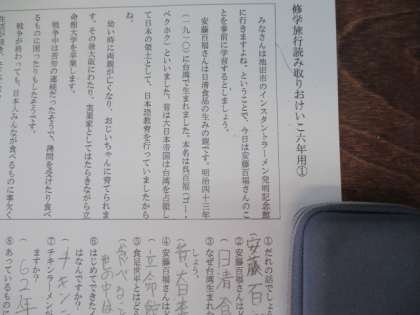 修学旅行読み取りおけいこ六年用①
みなさんは池田市のインスタントラーメン発明記念館
に行きますよね。ということで、今日は安藤百福さんのこ
とを事前に学習するとしましょう。
安藤百福さんは日清食品の生みの親です。明治四十三年
(一九一〇)に台湾で生まれました。本名は呉百福(ゴー・
ペクホク)といいました。昔は大日本帝国は台湾を占領し
て日本の領土として、日本語教育を行っていましたから
幼い時に両親が亡くなり、おじいちゃんに育てられま
す。その後大阪にわたり、実業家としてはたらきながら立
命館大学を卒業します。
戦争中は苦労の連続だったそうで、拷問を受けたり食べ
るものに困ったりもしたそうです。
戦争が終わっても、日本人みんなが食べるものに事欠く
①だれの話でしょう
安藤百
②安藤百福さんは
日清食
③なぜ台湾生まれ
しょう。
昔、大日本
④安藤百福さんは
立命館
⑤食足世平とは
食べること
⑥はじめてできた
はなんですか?
チキン
⑦チキンラーメンが
ますか?
62年
⑧あっているものに